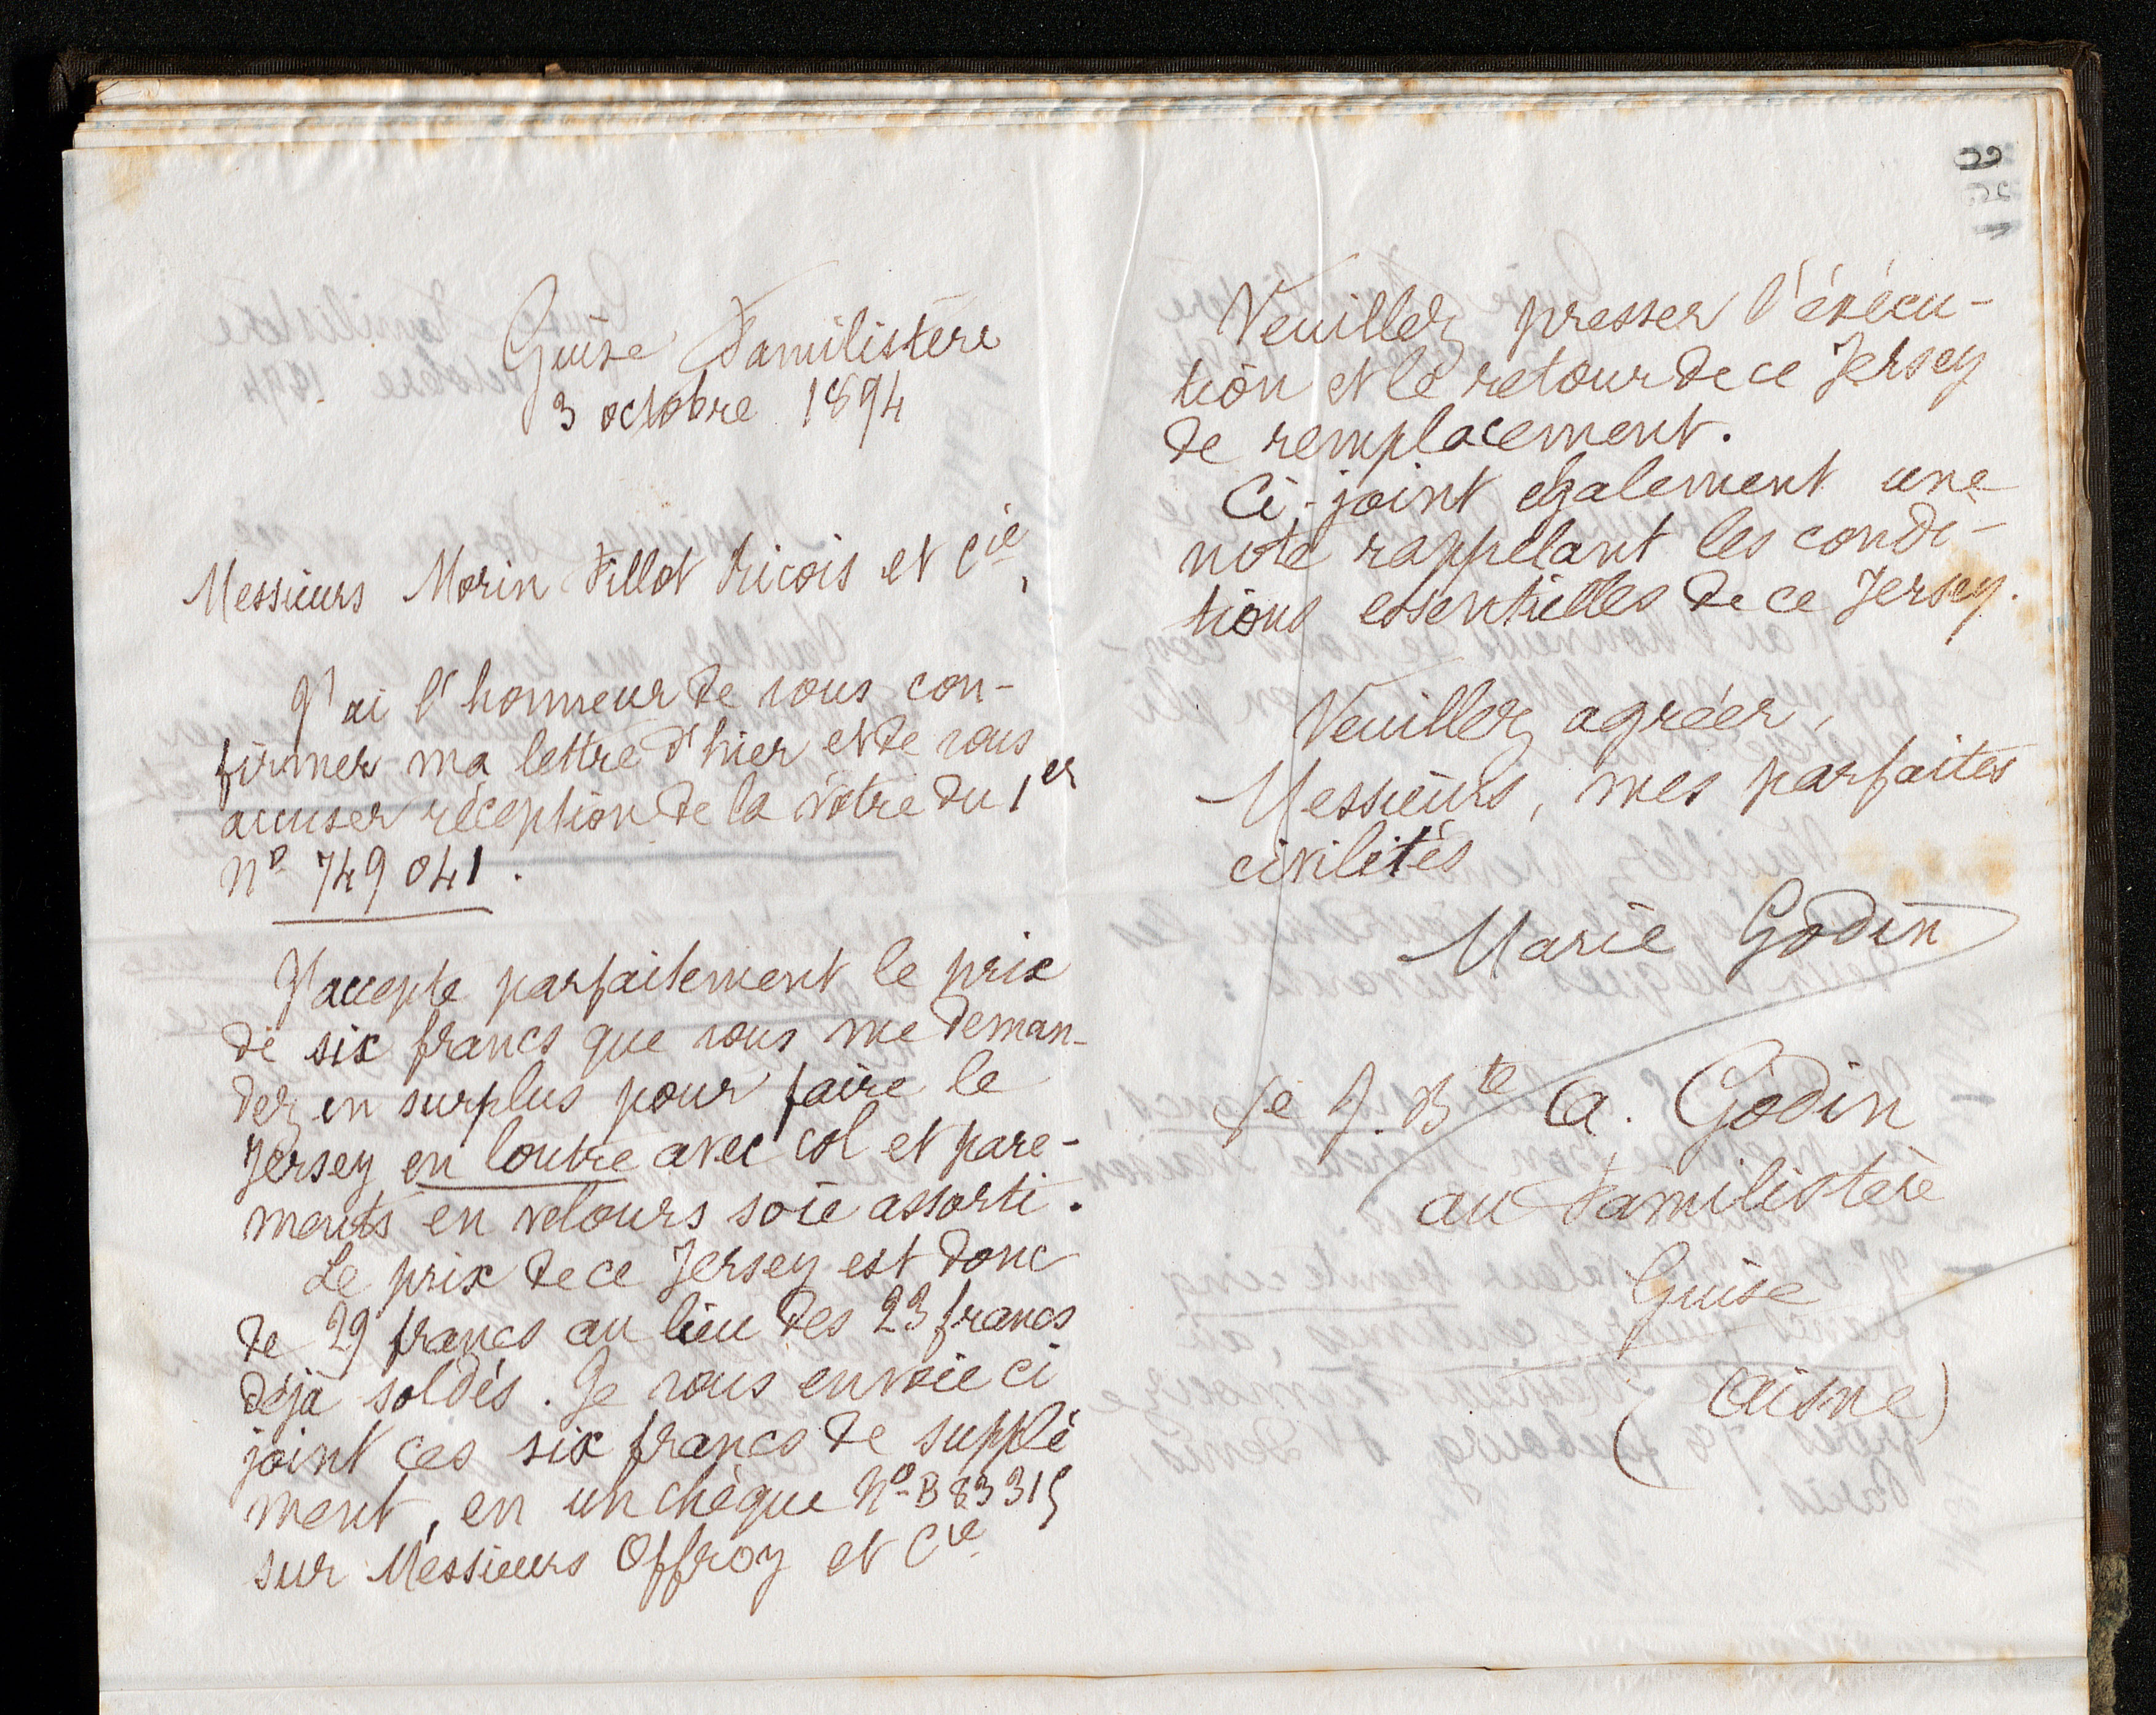 Guise Familistère
3 octobre 1894
Messieurs Morin Fillot Ricois et Cie,
J'ai l'honneur de vous con-
firmer ma lettre d'hier et de vous
accuser réception de la vôtre du 1er
No 749 041.
J'accepte parfaitement le prix
de six francs que vous me deman-
dez en surplus pour faire le
Jersey en loutre avec col et pare-
ments en velours soie assorti.
Le prix de ce Jersey est donc
de 29 francs au lieu des 23 francs
déjà soldés. Je vous envoie ci
joint ces six francs de supplé
ment, en un chèque No B 83315
sur Messieurs Offroy et Cie
Veuillez presser l'éxécu-
tion et le retour de ce Jersey
de remplacement.
Ci-joint également une
note rappelant les condi-
tions essentielles de ce Jersey.
Veuillez agréer,
Messieurs, mes parfaites
civilités
Marie Godin
J. Bte A. Godin
au Familistère
Guise
(Aisne)